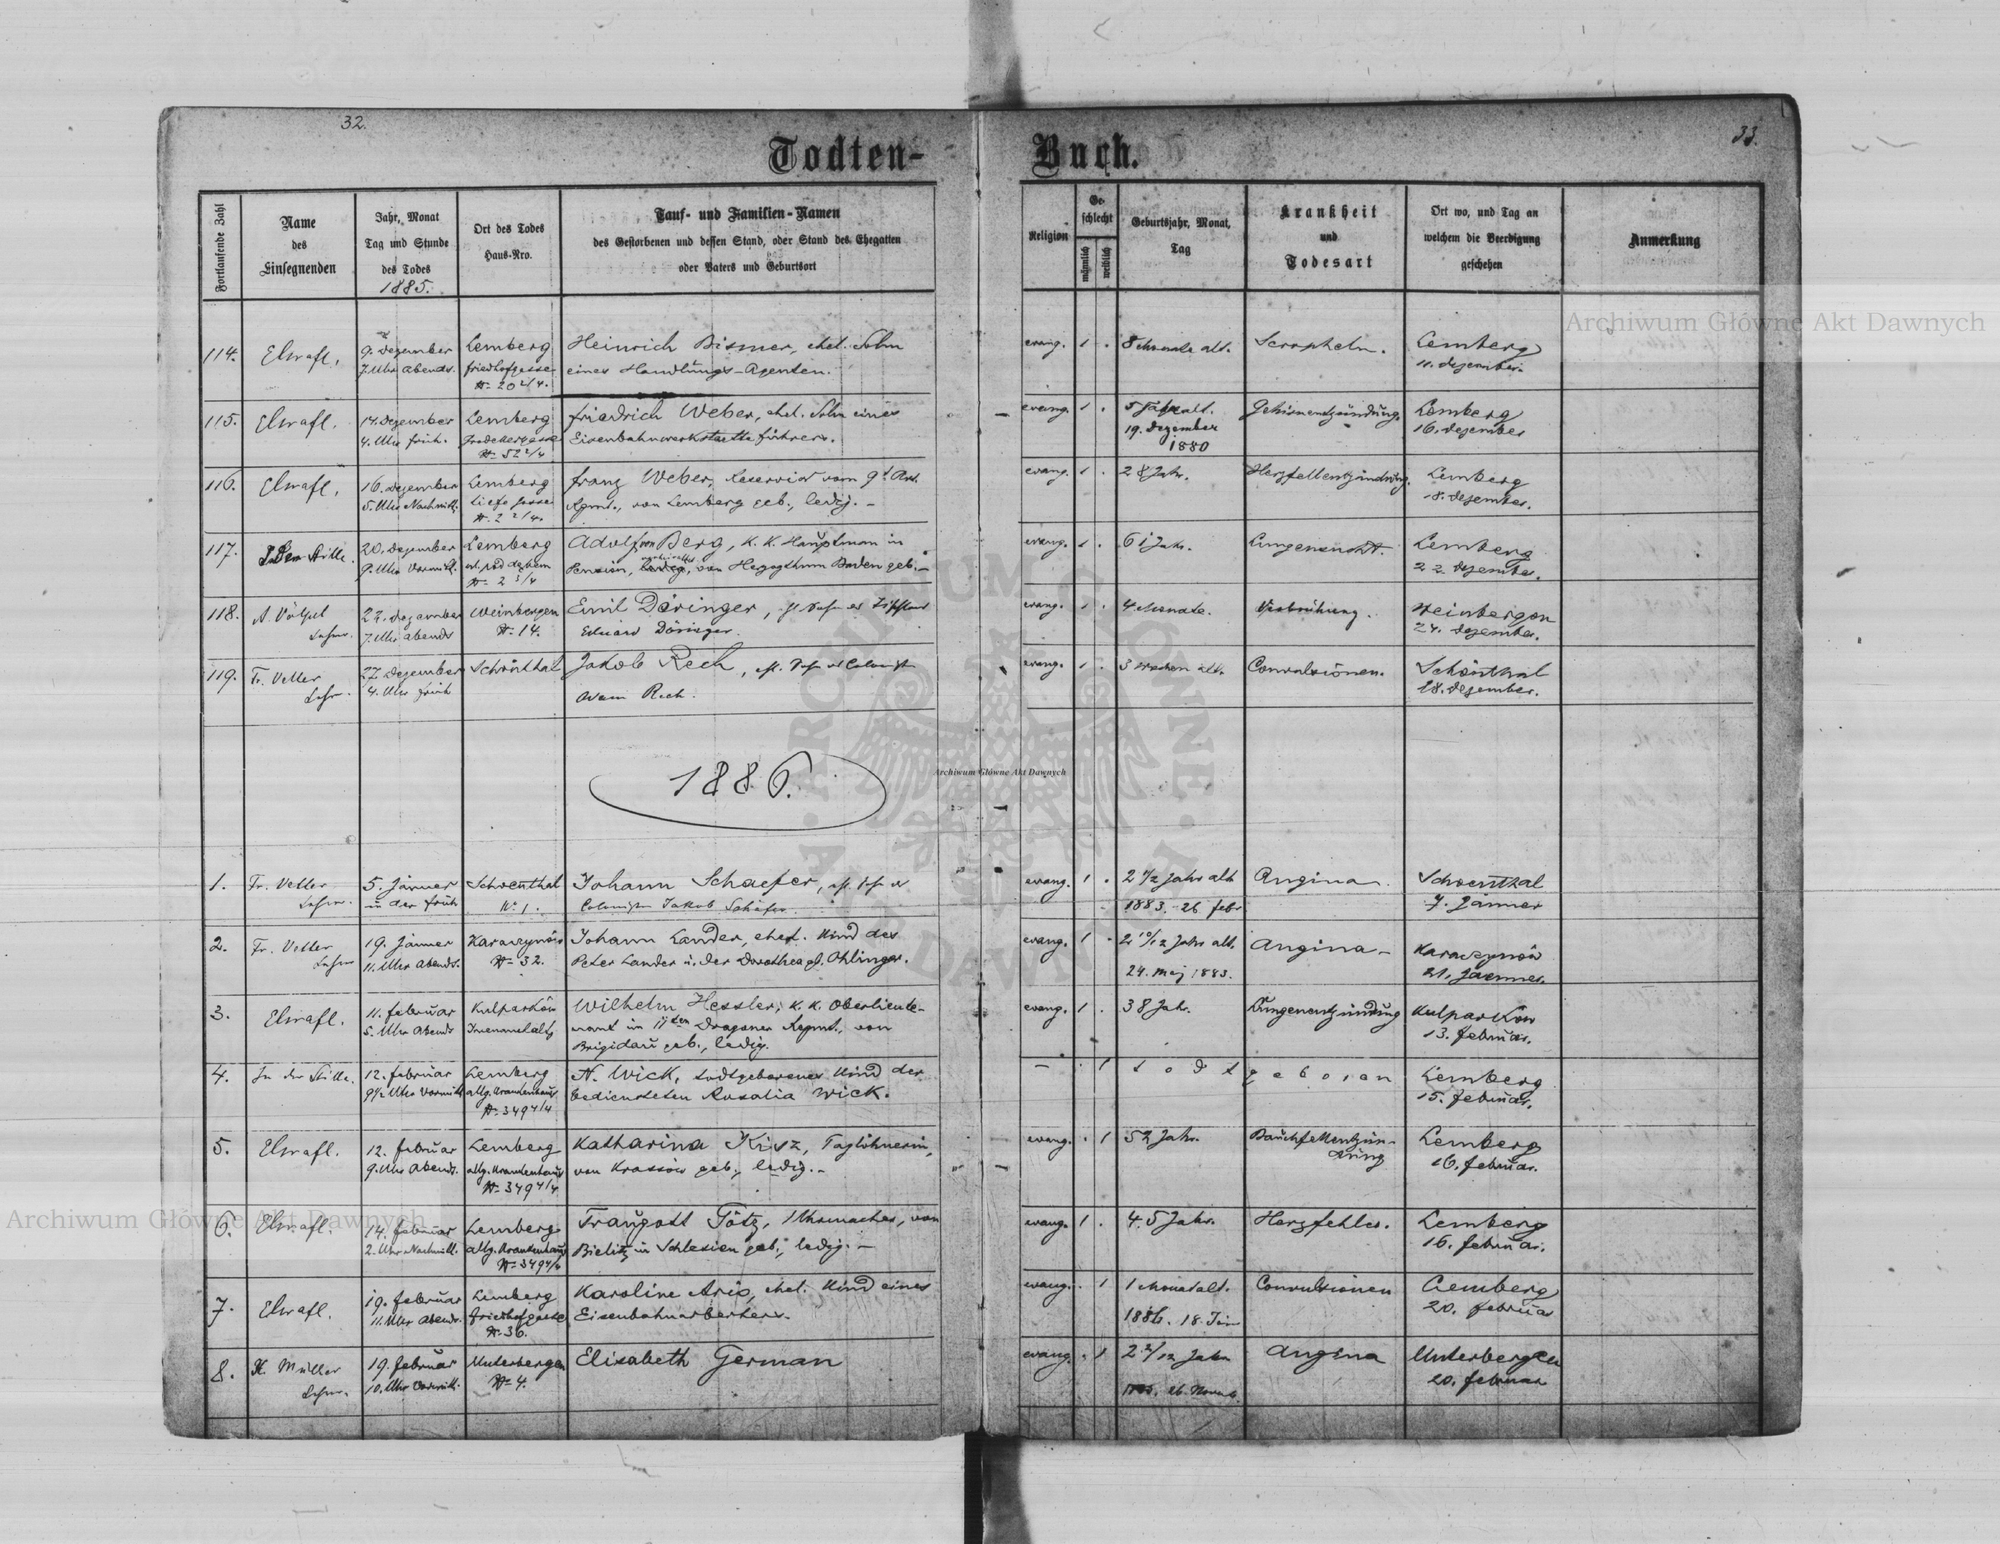 32.
33.
Todten-
Buch.
Fortlaufende Zahl
Name
des
Einsegnenden
Jahr, Monat
Tag und Stunde
des Todes
1885.
Ort des Todes
Haus-Nro.
Tauf- und Familien-Namen
des Gestorbenen und dessen Stand, oder Stand des Ehegatten
oder Vaters und Geburtsort
Religion
Ge-
schlecht
männlich
weiblich
Geburtsjahr, Monat,
Tag
Krankheit
und
Todesart
Ort wo, und Tag an
welchem die Beerdigung
geschehen
Anmerkung
114. 9. Dezember Lemberg Heinrich Bismer, ehel. Sohn evang. 1 . 8 Monate alt. Scropheln. Lemberg
7. Uhr abends. Friedhofgasse eines Handlungs-Agenten. 11. Dezember.
N= 20 2/4.
115. 14. Dezember Lemberg Friedrich Weber, ehel. Sohn eines evang. 1 . 5 Jahr alt. Gehirnentzündung. Lemberg
4. Uhr früh. Eisenbahnwerkstaetteführers. 19. Dezember 16. Dezember
N= 52 2/4 1880
116. 16. Dezember Lemberg Franz Weber, Reservist vom 9t Art. evang. 1 . 28 Jahr. Herzfellentzündung. Lemberg
5. Uhr Nachmitt. Tiefe Gasse Rgmt., von Lemberg geb., ledig. - 18. Dezember.
N= 2 2/4.
117. In der Stille. 20. Dezember Lemberg Adolf von Berg, K. K. Hauptman in evang. 1 . 61 Jahr. Lungensucht. Lemberg
9. Uhr Vormitt. Pension, von Herzogthum Baden geb. - 22. Dezember.
N= 2 3/4
118. A. Völpel 22. Dezember Weinbergen Emil Döringer, evang. 1 . 4 Monate. Verbrühung. Weinbergen
Lehrer. 7. Uhr abends N= 14. Eduard Döringer. 24. Dezember.
119. Fr. Vetter 27 Dezember Schönthal Jakob Rech, evang. 1 . 3 Wochen alt. Convulsionen. Schönthal
Lehr. 4. Uhr früh Adam Rech. 28. Dezember.
1886.
1. Fr. Vetter 5. Jänner Schoenthal Johann Schaefer, evang. 1 . 2 1/2 Jahr alt Angina. Schoenthal
Lehrer. in der früh N= 1. Colonisten Jakob Schäfer. 1883. 26 Febr 7. Jänner
2. Fr. Vetter 19. Jänner Johann Lander, ehel. Kind des evang. 1 . 2 10/12 Jahr alt. Angina -
Lehrer 11. Uhr Abends. N= 32. Peter Lander u. der Dorothea gb. Ohlinger. 24. Maj 1883. 21. Jaenner.
3. 11. Februar Kulparkow Wilhelm Hessler, K. K. Oberlieute- evang. 1 . 38 Jahr. Lungenentzündung Kulparkow
5. Uhr Abends Irrenanstalt nant im 11ten Dragoner Regmt., von 13. Februar.
geb., ledig.
4. In der Stille. 12. Februar Lemberg N. Wick, todtgeborenes Kind der - . 1 todtgeboren Lemberg
9 1/2 Uhr Vormitt. allg. Krankenhaus bediensteten Rosalia Wick. 15. Februar.
N= 349 4/4
5. 12. Februar Lemberg Katharina Kisz, Taglöhnerin, evang. . 1 52 Jahr. Bauchfellentzün- Lemberg
9. Uhr Abends. allg. Krankenhaus von geb., ledig. - dung 16. Februar.
N= 349 4/4
6. 14. Februar Lemberg Traugott Götz, Uhrmacher, von evang. 1 . 45 Jahr. Herzfehler. Lemberg
2. Uhr Nachmitt. allg. Krankenhaus Bielitz in Schlesien geb., ledig. - 16. Februar.
N= 349 4/4
7. 19. Februar Lemberg Karoline evang. . 1 1 Monat alt. Convulsionen Lemberg
11. Uhr Abends. Friedhofgasse Eisenbahnarbeiters. 1886. 18. Jän 20. Februar
N= 36.
8. K. Müller 19. Februar Unterbergen Elisabeth German evang. . 1 2 2/12 Jahr Angina Unterbergen
Lehrer. 10. Uhr Vormitt. N= 4. 26. Novemb 20. Februar
Archiwum Główne Akt Dawnych
Archiwum Główne Akt Dawnych
Archiwum Główne Akt Dawnych